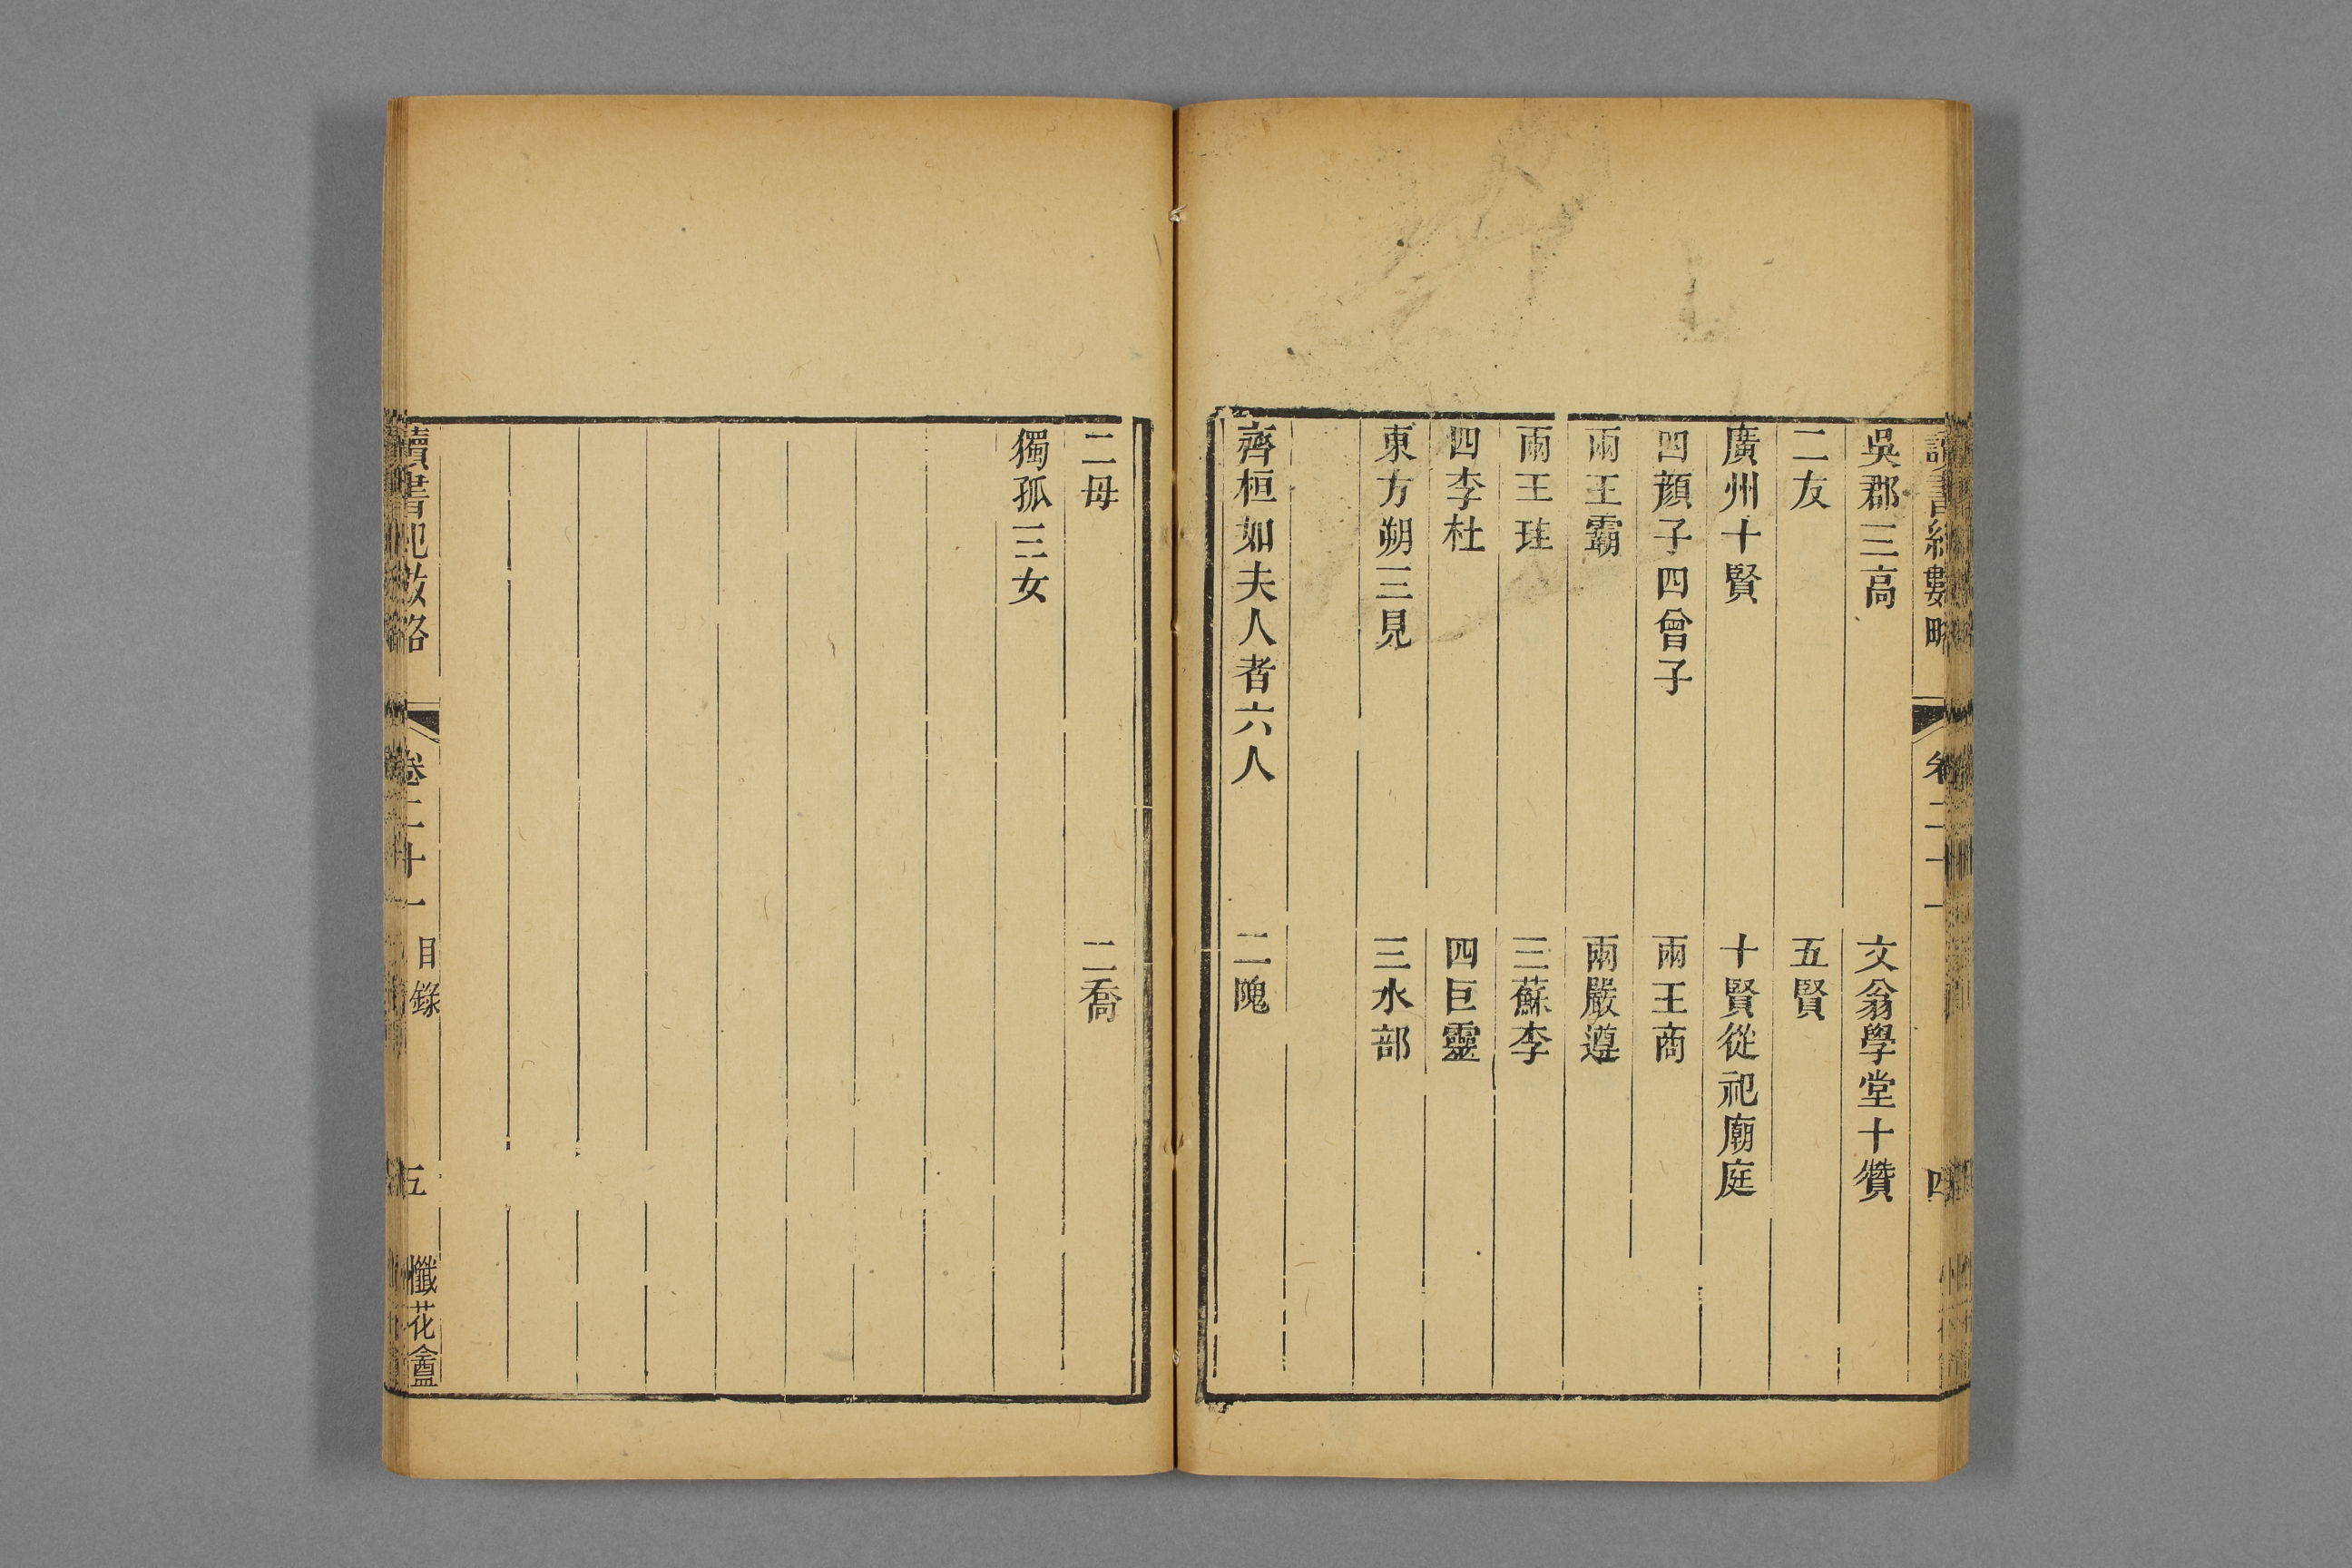 讀書紀數略 卷二十一 四
吳郡三高 文翁學堂十贊
二友 五賢
廣州十賢 十賢從祀廟庭
四顏子四曾子 兩王商
兩王霸 兩嚴遵
兩王珪 三蘇李
四李杜 四巨靈
東方朔三見 三水部
齊桓如夫人者六人 二隗
二母 二喬
獨孤三女
讀書紀數略 卷二十一 目錄 五 懺花盦